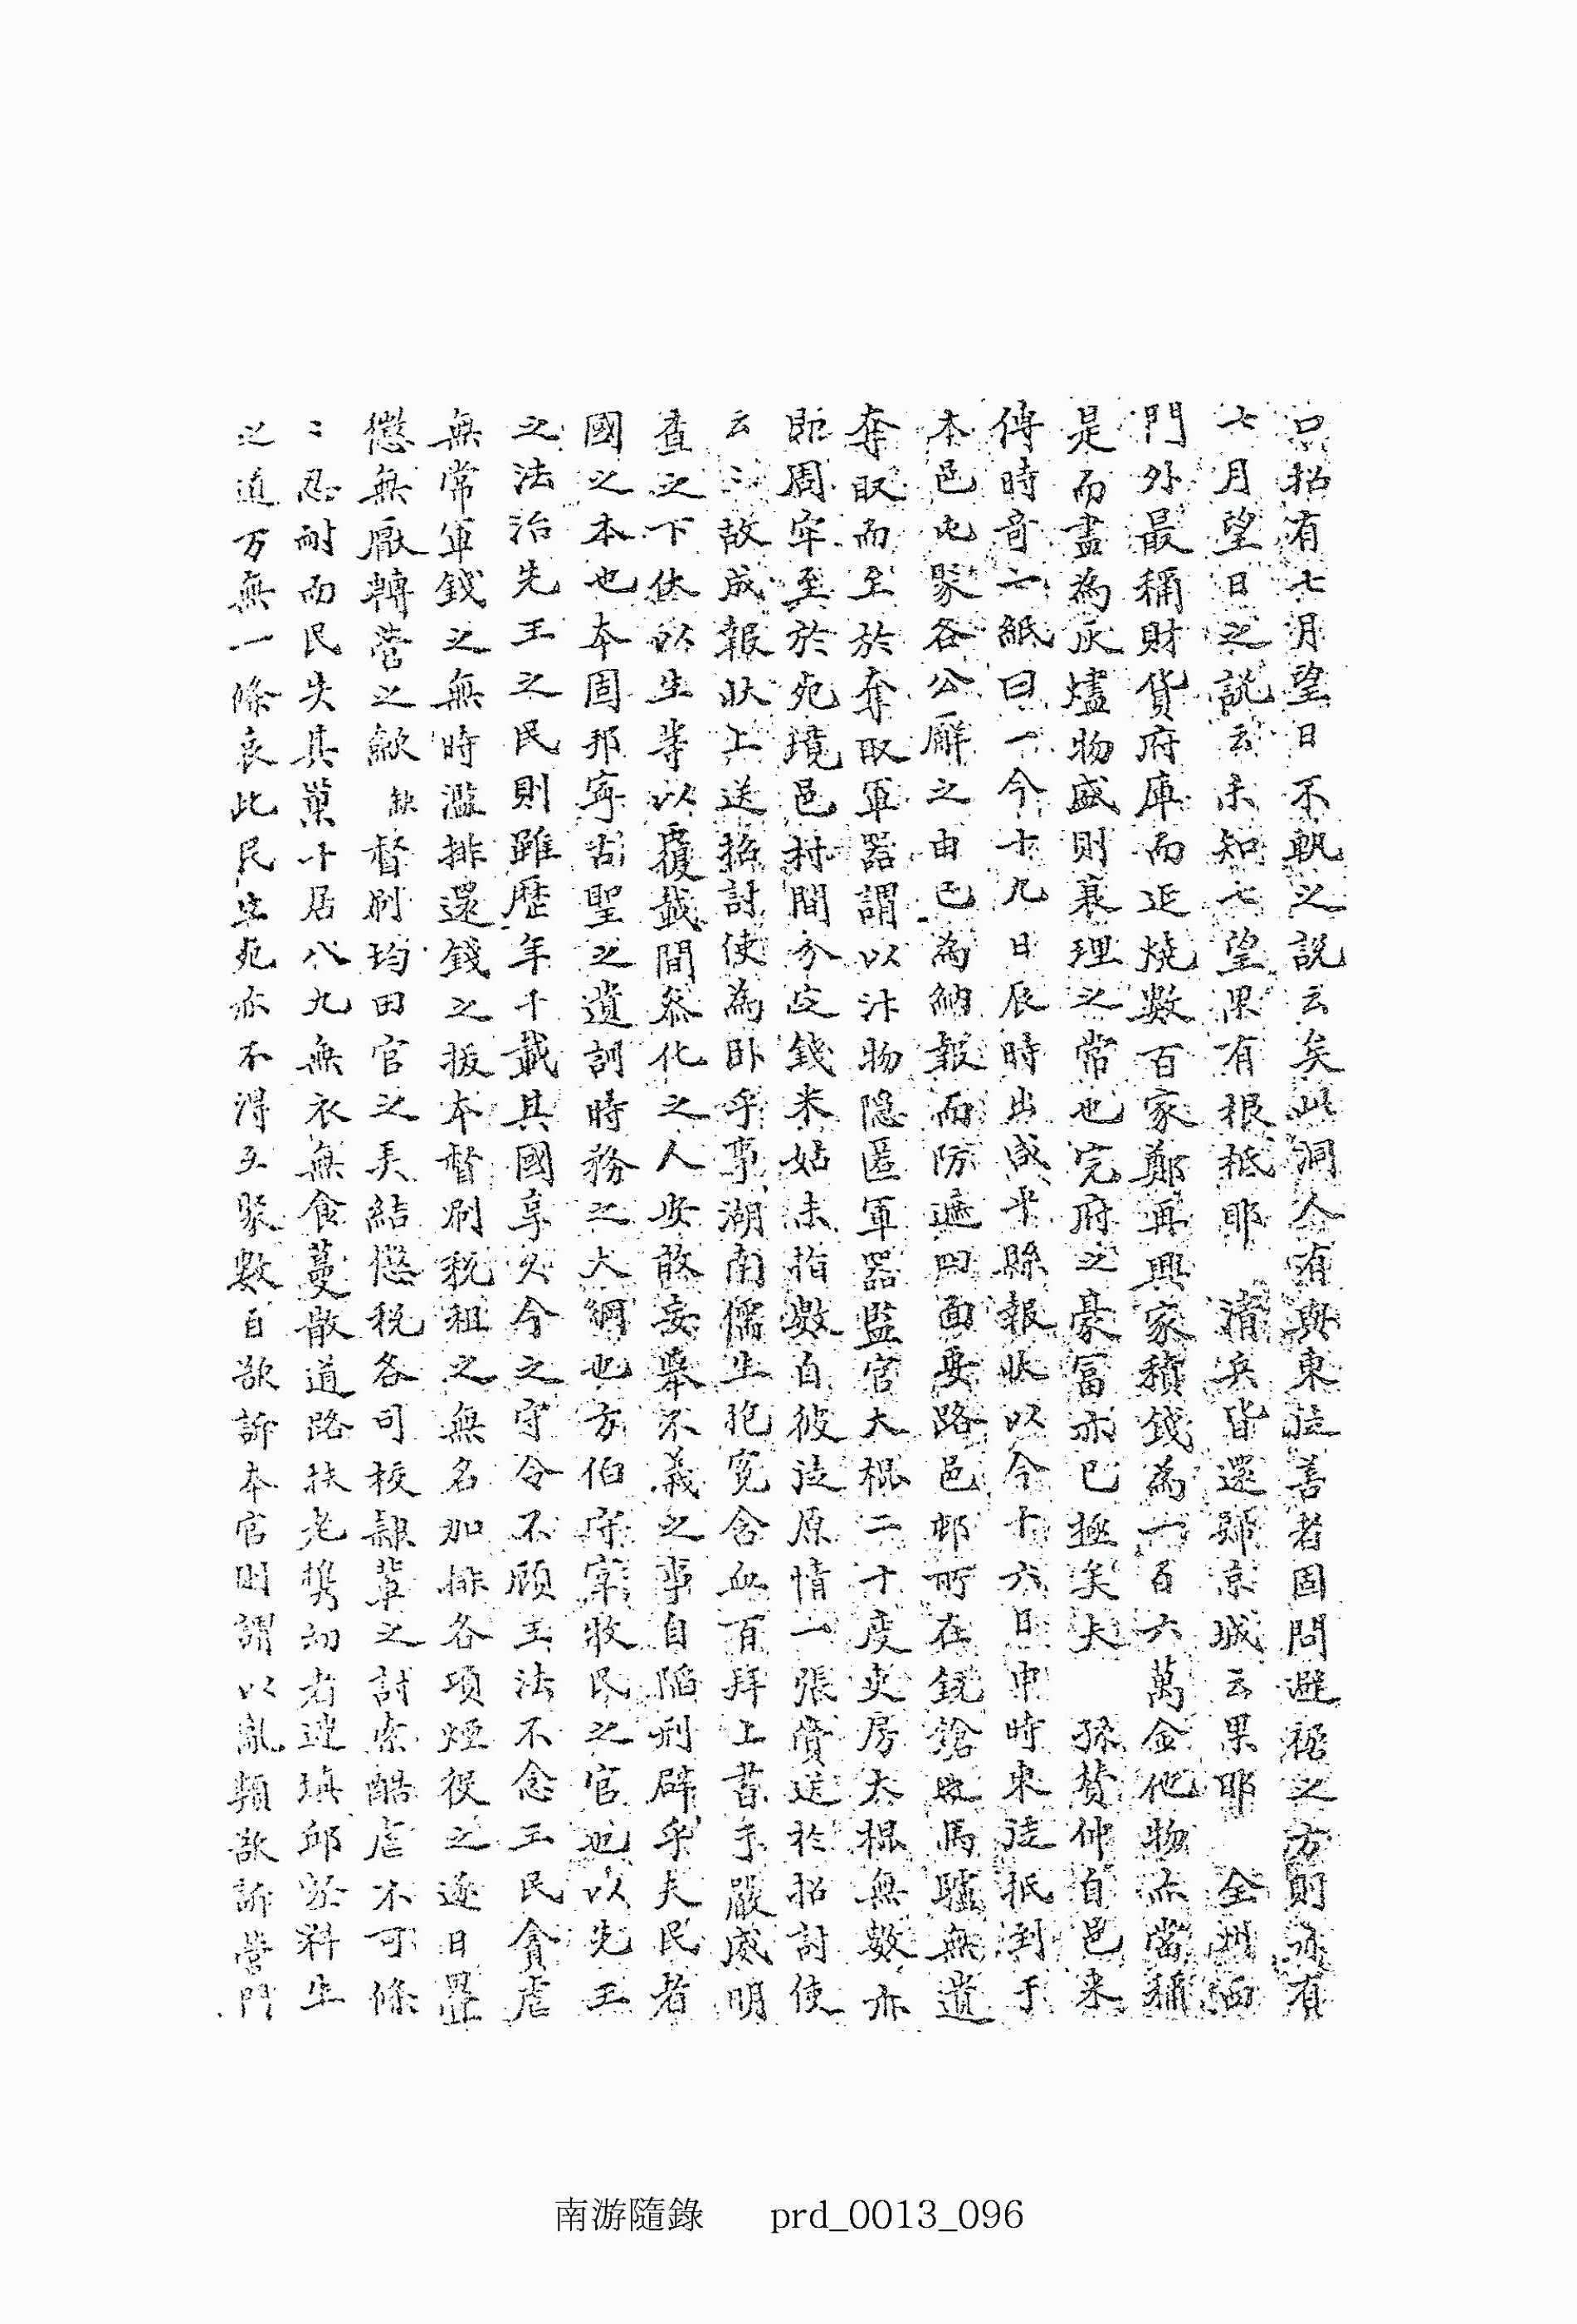 只招有七月望日不軌之說云矣此洞人有與東徒善者固問避禍之方則亦有
七月望日之說云未知七望果有根抵耶 淸兵皆還歸京城云果耶 全州西
門外最稱財貨府庫而延燒數百家鄭再興家積錢為一百六萬金他物亦當稱
是而盡為灰燼物盛則衰理之常也完府之豪富亦已極矣夫 孫贊仲自邑來
傳時奇二紙曰一今十九日辰時出咸平縣報狀以今十六日申時東徒抵到于
本邑屯聚各公廨之由已為納報而防遮四面要路邑邨所在銃槍與馬驢無遺
奪取而至於奪取軍器謂以汴物隱匿軍器監官大棍二十度吏房大棍無數亦
即周牢至於宛境邑村間分定錢米姑未指數自彼徒原情一張賫送於招討使
云〻故成報狀上送招討使為臥乎事 湖南儒生抱寃含血百拜上書于嚴威明
查之下伏以生等以覆載間叅化之人安敢妄擧不義之事自陷刑辟乎夫民者
國之本也本固邦寧古聖之遺訓時務之大綱也方伯守宰牧民之官也以先王
之法治先王之民則雖歷年千載其國享久今之守令不顧王法不念王民貪虐
無常軍錢之無時濫排還錢之拔本督刷稅租之無名加排各項烟役之逐日疊
懲無厭轉營之歛 缺 督刷均田官之弄結懲稅各司校隸輩之討索酷虐不可條
〻忍耐而民失其業十居八九無衣無食蔓散道路扶老携幼者連塡邱壑料生
之道万無一條哀此民生死亦不得互聚數百欲訴本官則謂以亂類欲訴營門
南游隨錄 prd_0013_096